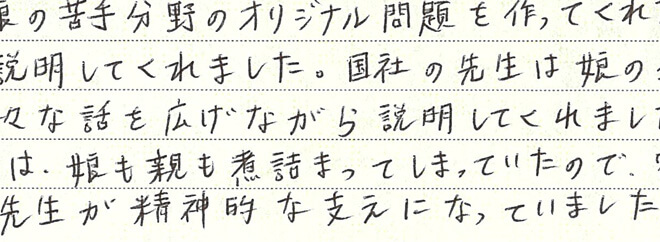 の苦手分野のオリジナル問題を作ってくれ
説明してくれました。国社の先生は娘の
々な話を広げながら説明してくれまし
は、娘も親も煮詰まってしまっていたので、
先生が精神的な支えになっていました